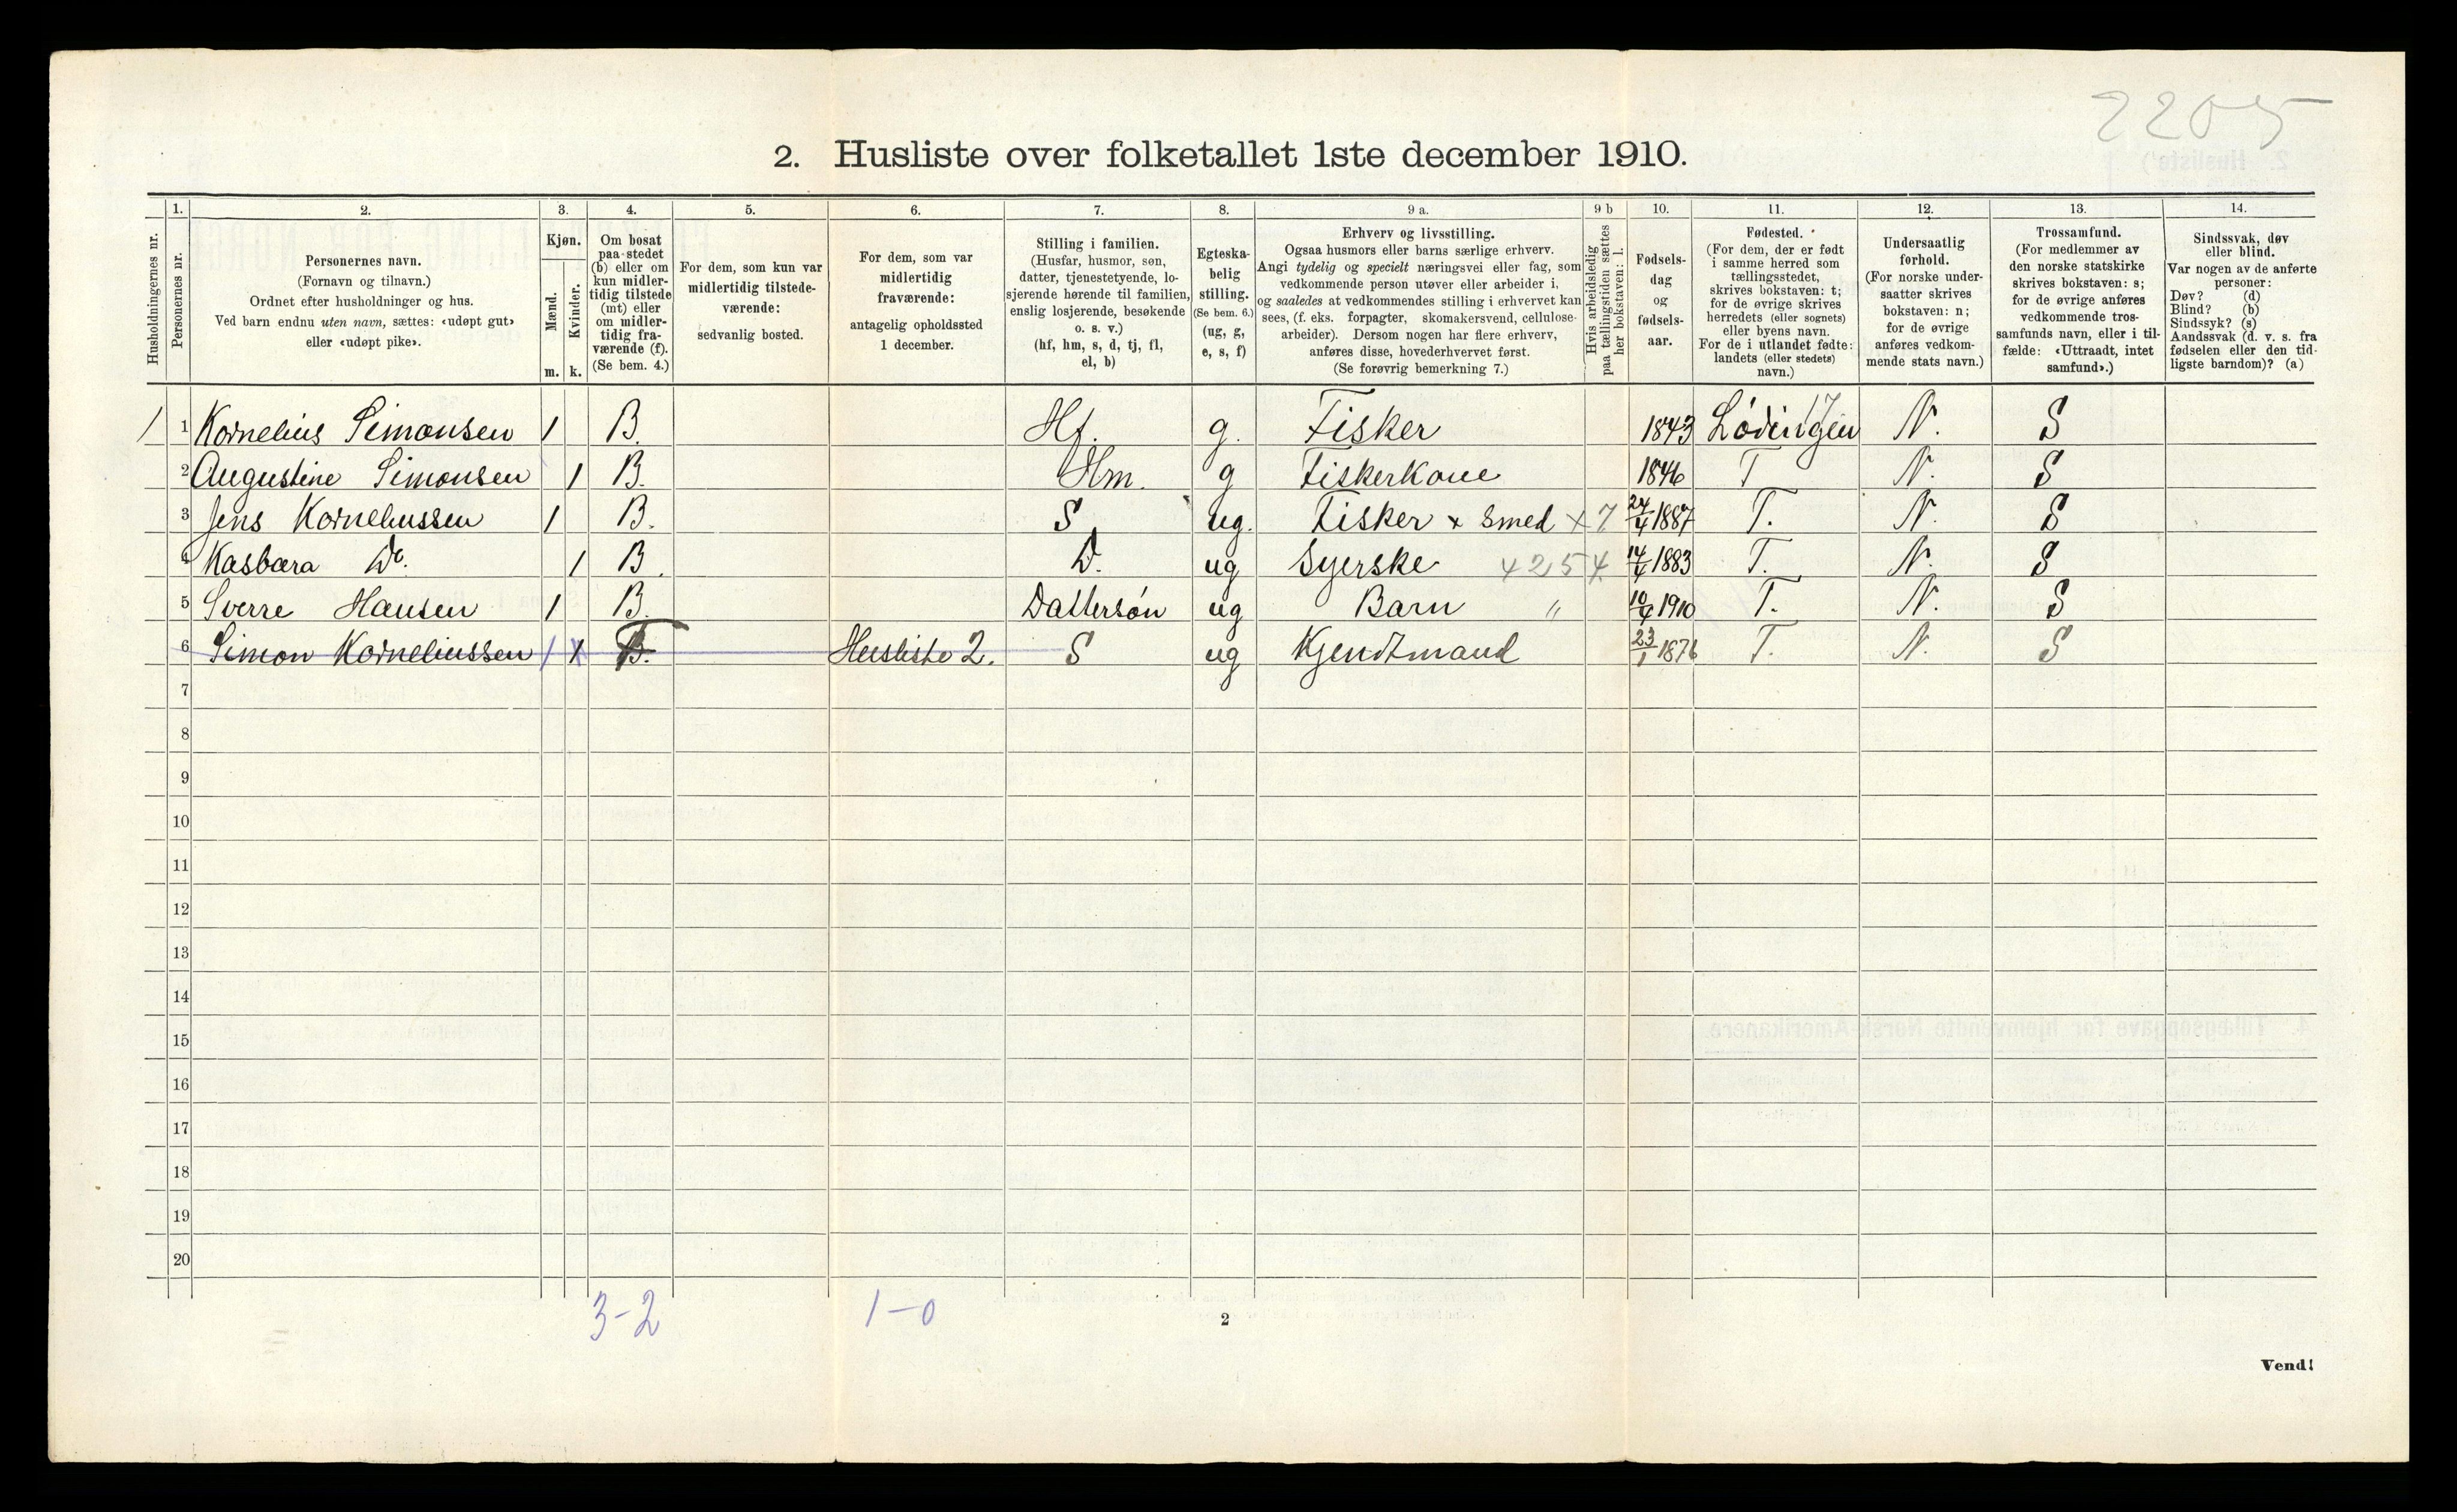 2205
2. Husliste over folketallet 1ste december 1910.
Husholdningernes nr.
1. 2. 3. 4. 5. 6. 7. 8. 9 a. 9 b 10. 11. 12. 13. 14.
Personernes nr.
Personernes navn.
(Fornavn og tilnavn.)
Ordnet efter husholdninger og hus.
Ved barn endnu uten navn, sættes: «udøpt gut»
eller «udøpt pike».
Kjøn.
Mænd.
Kvinder.
m. k.
Om bosat
paa stedet
(b) eller om
kun midler-
tidig tilstede
(mt) eller
om midler-
tidig fra-
værende (f).
(Se bem. 4.)
For dem, som kun var
midlertidig tilstede-
værende:
sedvanlig bosted.
For dem, som var
midlertidig
fraværende:
antagelig opholdssted
1 december.
Stilling i familien.
(Husfar, husmor, søn,
datter, tjenestetyende, lo-
sjerende hørende til familien,
enslig losjerende, besøkende
o. s. v.)
(hf, hm, s, d, tj, fl,
el, b)
Egteska-
belig
stilling.
(Se bem. 6.)
(ug, g,
e, s, f)
Erhverv og livsstilling.
Ogsaa husmors eller barns særlige erhverv.
Angi tydelig og specielt næringsvei eller fag, som
vedkommende person utøver eller arbeider i,
og saaledes at vedkommendes stilling i erhvervet kan
sees, (f. eks. forpagter, skomakersvend, cellulose-
arbeider). Dersom nogen har flere erhverv,
anføres disse, hovederhvervet først.
(Se forøvrig bemerkning 7.)
Hvis arbeidsledig
paa tællingstiden sættes
her bokstaven: l.
Fødsels-
dag
og
fødsels-
aar.
Fødested.
(For dem, der er født
i samme herred som
tællingsstedet,
skrives bokstaven: t;
for de øvrige skrives
herredets (eller sognets)
eller byens navn.
For de i utlandet fødte:
landets (eller stedets)
navn.)
Undersaatlig
forhold.
(For norske under-
saatter skrives
bokstaven: n;
for de øvrige
anføres vedkom-
mende stats navn.)
Trossamfund.
(For medlemmer av
den norske statskirke
skrives bokstaven: s;
for de øvrige anføres
vedkommende tros-
samfunds navn, eller i til-
fælde: «Uttraadt, intet
samfund».)
Sindssvak, døv
eller blind.
Var nogen av de anførte
personer:
Døv? (d)
Blind? (b)
Sindssyk? (s)
Aandssvak (d. v. s. fra
fødselen eller den tid-
ligste barndom)? (a)
1 1 Kornelius Simonsen 1 B. Hf. g. Fisker 1843 Lødingen N. S
2 Augustine Simonsen 1 B. Hm. g Fiskerkone 1846 T N. S
3 Jens Korneliussen 1 B. S ug. Fisker x Smed x 7 24/4 1887 T. N. S
4 Kasbara Do. 1 B. D. ug Syerske 4254 14/4 1883 T. N. S
5 Sverre Hansen 1 B. Dattersøn ug Barn " 10/4 1910 T. N. S
6 Simon Korneliussen 1 x Husliste 2. S ug Kjendtmand 23/1 1876 T. N. S
7
8
9
10
11
12
13
14
15
16
17
18
19
20
3-2 1-0
2
Vend!